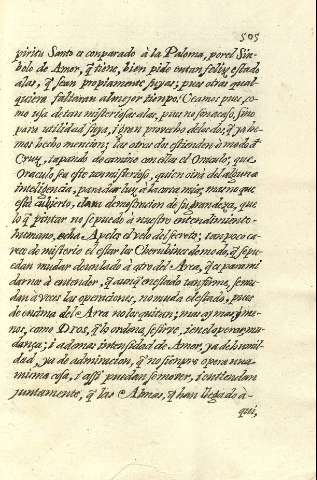 505
piritu Santo es conparado à la Paloma, por el Sim
bolo de Amor, q̃ tiene, bien pide en tan feliz estado
alas, q̃ sean propiamente suyas; pues otras qual-
quiera faltaran al mejor tiempo. Veamos pues, co-
mo usa de tan misteriosas alas, pues no son acaso, sino
para utilidad suya, i gran provecho de las dos; q̃ ya he-
mos hecho mencion; las otras dos estienden à modo de
Cruz, tapando de camino con ellas el Oraculo; que
Oraculo sea este tan misterioso, quien oirà del alguna
inteligencia, para dar luz à la corta mia; mas no que
està cubierto, darà demostracion de su grandeza, que
lo q̃ pintar no se puede à nuestro entendimiento
humano, echa Apeles el velo del secreto; tanpoco ca-
rece de misterio el estar los Cherubines de modo, q̃ se pue-
dan mudar de un lado à otro del Arca, q̃ es para mi
darnos à entender, q̃ aunq̃ en estado tan firme, se mu-
dan à veces las operaciones, no muda el estado, pues
de encima del Arca no los quitan; mas ay mas, i me-
nos, como Dios, q̃ lo ordena, se sirve, i en el operar, mu-
danza; i ademas intensidad de Amor, ya de humil-
dad, ya de admiracion, q̃ no siempre opera una
misma cosa, i assi puedan se mover, i entiendan
juntamente, q̃ las Almas, q̃ han llegado à-
qui,